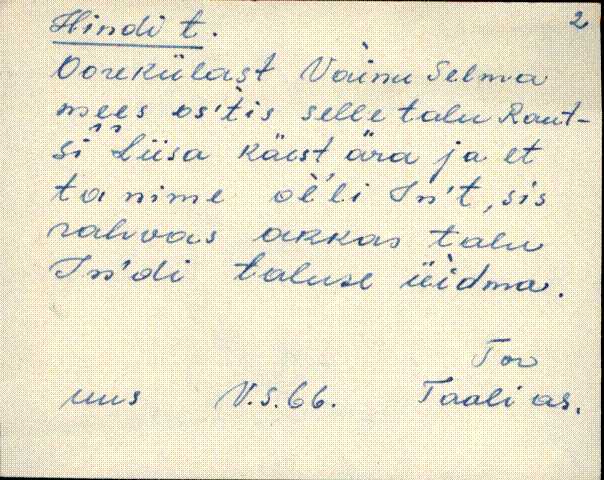 2
Hindi t.
Oorekülast Vàinu Selma
mees os'tis selle talu Raut-
si Liisa käest ära ja et
ta nime ol'li In't, sis
rahvas akkas talu
In'di taluse üidma.
Tor
uus V.S.66. Taali as.